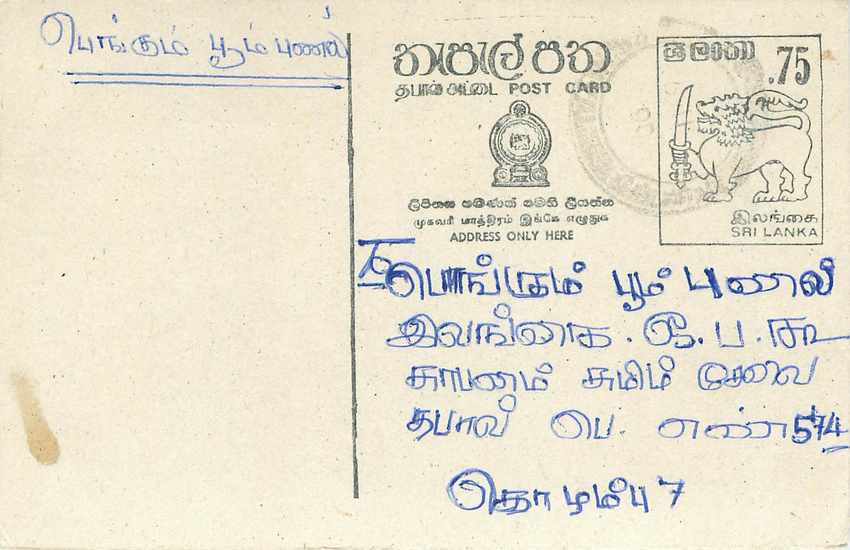 பொங்கும் பூம் புணல்
තැපැල් පත
தபால் அட்டை POST CARD
ශ්‍රී ලංකා
.75
ලිපිනය පමණක් මෙහි ලියන්න
முகவரி மாத்திரம் இங்கே எழுதுக
ADDRESS ONLY HERE
இலங்கை
SRI LANKA
To
பொங்கும் பூம் புணல்
இலங்கை . ஒ . ப . கூ
தபால் பெ. எண் 574
கொழம்பு 7